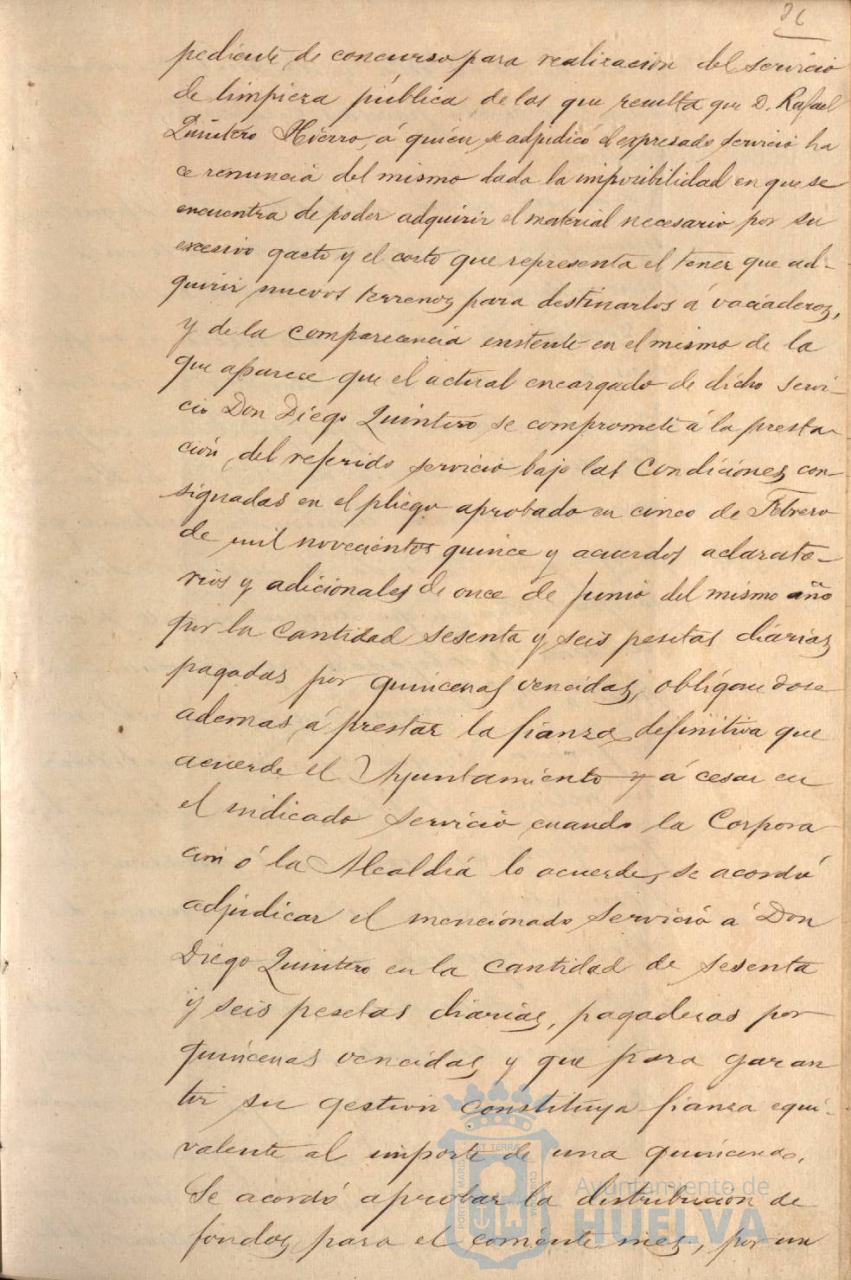 pediente de concurso para realizacion del servicio
de limpieza pública de las que resulta que D. Rafael
Quintero Hierro, á quien se adjudicó el expresado servicio ha
ce renuncia del mismo dada la imposibilidad en que se
encuentra de poder adquirir el material necesario por su
excesivo gasto y el costo que representa el tener que ad-
quirir nuevos terrenos para destinarlos á vaciaderos,
y de la comparecencia existente en el mismo de la
que aparece que el actual encargado de dicho servi-
cio Don Diego Quintero se compromete á la presta-
ción del referido servicio bajo las condiciones con-
signadas en el pliego aprobado en cinco de Febrero
de mil novecientos quince y acuerdos aclarato-
rios y adicionales de once de Junio del mismo año
por la cantidad sesenta y seis pesetas diarias
pagadas por quincenas vencidas, obligandose
ademas á prestar la fianza definitiva que
acuerde el Ayuntamiento y á cesar en
el indicado servicio cuando la Corpora
cion ó la Alcaldia lo acuerde, se acordó
adjudicar el mencionado servicio á Don
Diego Quintero en la cantidad de sesenta
y seis pesetas diarias, pagaderas por
quincenas vencidas y que para garan
tir su gestion constituya fianza equi-
valente al importe de una quincena.
Se acordó aprobar la distribucion de
fondos para el corriente mes, por un
Ayuntamiento de
HUELVA